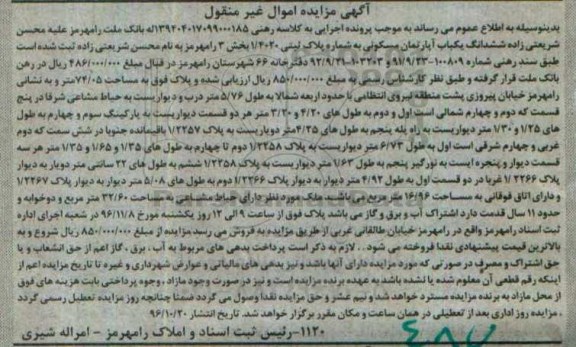 آگهی مزایده اموال غیر منقول
بدینوسیله به اطلاع عموم می رساند به موجب پرونده اجرایی به کلاسه رهنی ۱۳۹۲۰۴۰۱۷۰۹۹۰۰۰۱۸۵له بانک ملت رامهرمز علیه محسن
شریعتی زاده ششدانگ یکباب آپارتمان مسکونی به شماره پلاک ثبتی ۱/۴۰۲۰ بخش ۳ رامهرمز به نام محسن شریعتی زاده ثبت شده است
طبق سند رهنی شماره ۱۰۰۸۰۹-۹۱/۹/۲۳ و ۱۰۳۲۰۳-۹۲/۹/۲۱ دفترخانه ۶۶ شهرستان رامهرمز در قبال مبلغ ۴۸۶/۰۰۰/۰۰۰ ریال در رهن
بانک ملت قرار گرفته و طبق نظر کارشناس رسمی به مبلغ ۸۵۰/۰۰۰/۰۰۰ ریال ارزیابی شده و پلاک فوق به مساحت ۷۴/۰۵متر و به نشانی
رامهرمز خیابان پیروزی پشت منطقه نیروی انتظامی با حدود اربعه شمالا به طول ۵/۷۶ متر درب و دیواریست به حیاط مشاعی شرقا در پنج
قسمت که دوم و چهارم شمالی است اول و دوم به طول های ۴/۲۰ و ۳/۲۰ متر هر دو قسمت دیواریست به پارکینگ سوم و چهارم به طول
های ۱/۲۵ و ۱/۳۰ متر دیواریست به راه پله پنجم به طول های ۴/۳۵متر دویاریست به پلاک ۱/۲۲۵۷ باقیمانده جنوبا در شش سمت که دوم
غربی و چهارم شرقی است اول به طول ۶/۷۳ متر دیواریست به پلاک ۱/۲۲۵۸ دوم تا چهارم به طول های ۱/۳۵ و ۱/۶۵ و ۱/۳۵ متر هر سه
قسمت دیوار و پنجره ایست به نورگیر پنجم به طول ۱/۶۳ متر دیواریست به پلاک ۱/۲۲۵۸ ششم به طول های ۲۲ سانتی متر دویار به دیوار
پلاک ۱/۲۲۶۶ غربا در دو قسمت اول به طول ۴/۹۲ متر دیوار به دیوار پلاک ۱/۲۲۶۶ دوم به طول های ۵/۰۸ متر دیوار به دیوار پلاک ۱/۲۲۶۷
و دارای اتاق فوقانی به مساحت ۱۶/۹۶ متر مربع می باشید ملک مورد نظر دارای حیاط مشاعی به مساحت ۳۲/۶۰ متر مربع و دوخوابه و
حدود ۱۱ سال قدمت دارد اشتراک آب و برق و گاز می باشد پلاک فوق از ساعت ۹ الی ۱۲ روز یکشنبه مورخ ۹۶/۱۱/۸ در شعبه اجرای اداره
ثبت اسناد رامهرمز واقع در رامهرمز خیابان طالقانی غربی از طریق مزایده به فروش می رسد مزایده از مبلغ ۸۵۰/۰۰۰/۰۰۰ ریال شروع و به
بالاترین قیمت پیشنهادی نقدا فروخته می شود . . لازم به ذکر است پرداخت بدهی های مربوط به آب ، برق ، گاز اعم از حق انشعاب و یا
حق اشتراک و مصرف در صورتی که مورد مزایده دارای آنها باشد و نیز بدهی های مالیاتی و عوارض شهرداری و غیره تا تاریخ مزایده اعم از
اینکه رقم قطعی آن معلوم شده یا نشده باشد به عهده برنده مزایده است و نیز در صورت وجود مازاد ، وجوه پرداختی بابت هزینه های فوق
از محل مازاد به برنده مزایده مسترد خواهد شد و نیم عشر و حق مزایده نقدا وصول می گردد ضمنا چنانچه روز مزایده تعطیل رسمی گردد
، مزایده روز اداری بعد از تعطیلی در همان ساعت و مکان مقرر برگزار خواهد شد. تاریخ انتشار ۹۶/۱۰/۲۰
۱۱۲۰-رئیس ثبت اسناد و املاک رامهرمز - امراله شیری